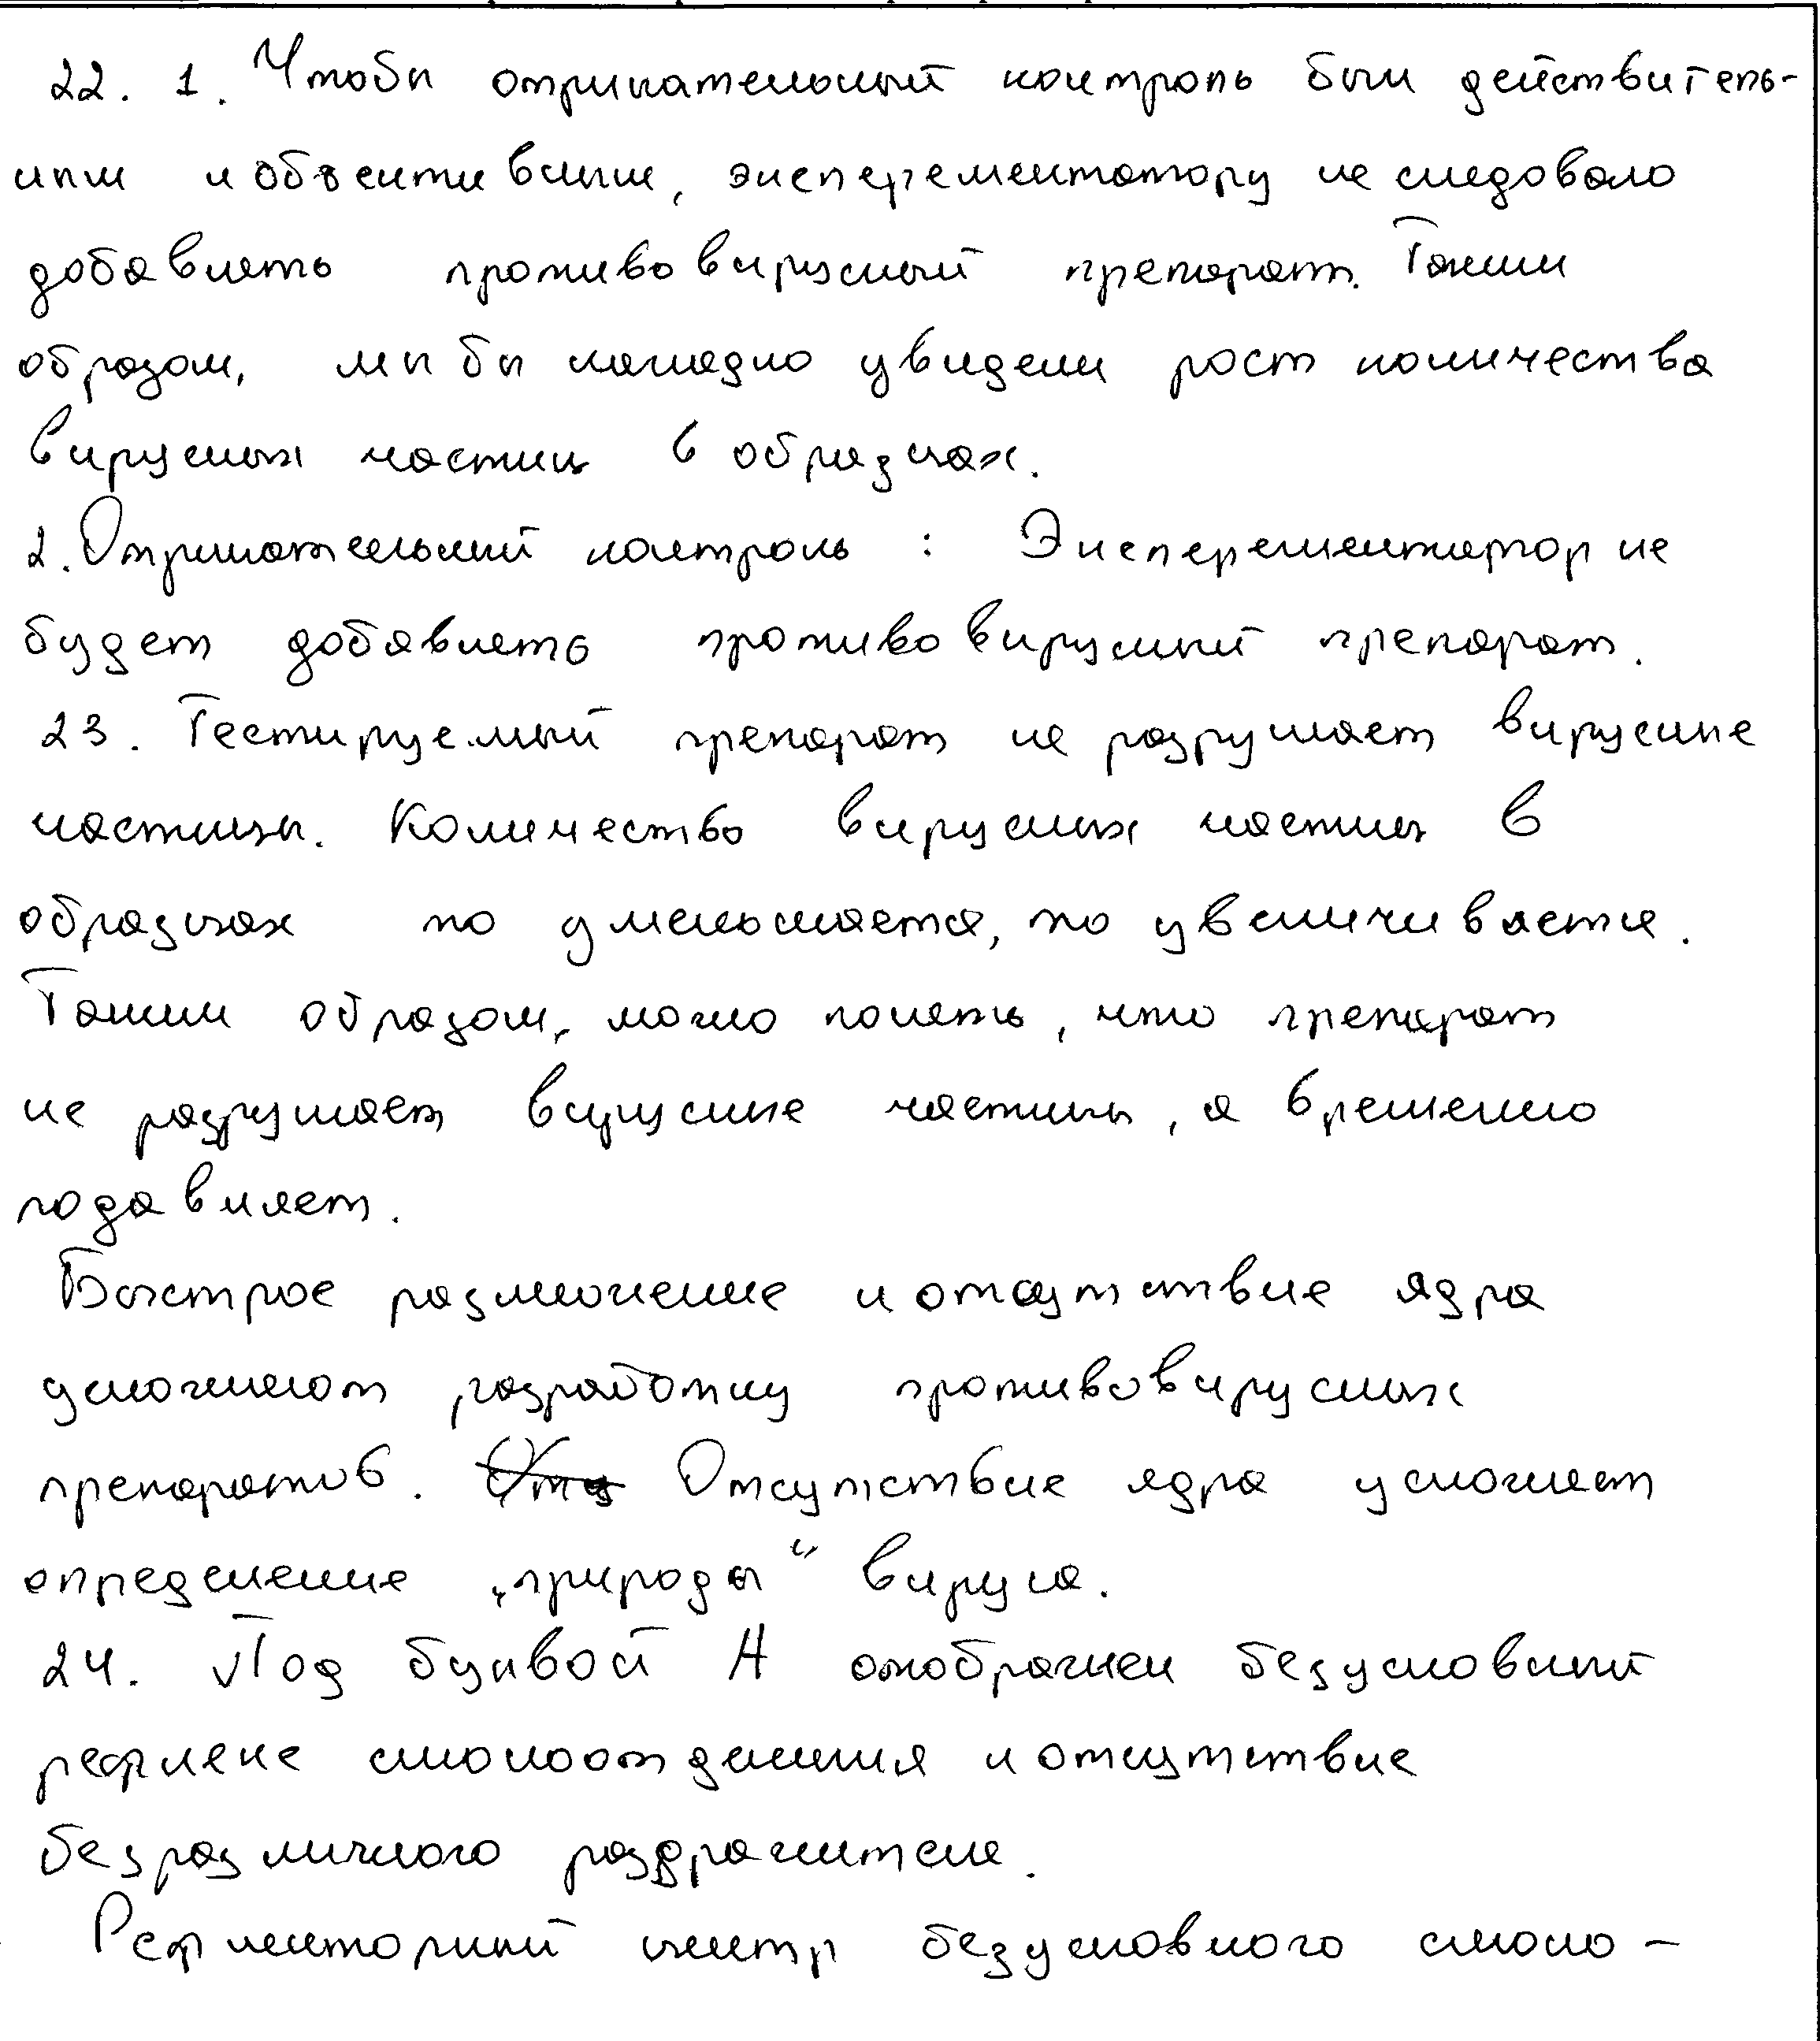 22. 1. Чтобы отрицательный контроль был действитель-
ным и объективным, эксперементатору не следовало
добавлять противовирусный препарат. Таким
образом, мы бы наглядно увидели рост количества
вирусных частиц в образцах.
2. Отрицательный контроль : Эксперементатор не
будет добавлять противовирусный препарат.
23. Тестируемый препарат не разрушает вирусные
частицы. Количество вирусных частиц в
образцах то уменьшается, то увеличивается.
Таким образом, можно понять, что препарат
не разрушает вирусные частицы, а временно
подавляет.
Быстрое размножение и отсутствие ядра
усложняют разработку противовирусных
препаратов. Отсутствие ядра усложняет
определение „природы“ вируса.
24. Под буквой А отображен безусловный
рефлекс слюноотделения и отсутствие
безразличного раздражителя.
Рефлекторный центр безусловного слюно-